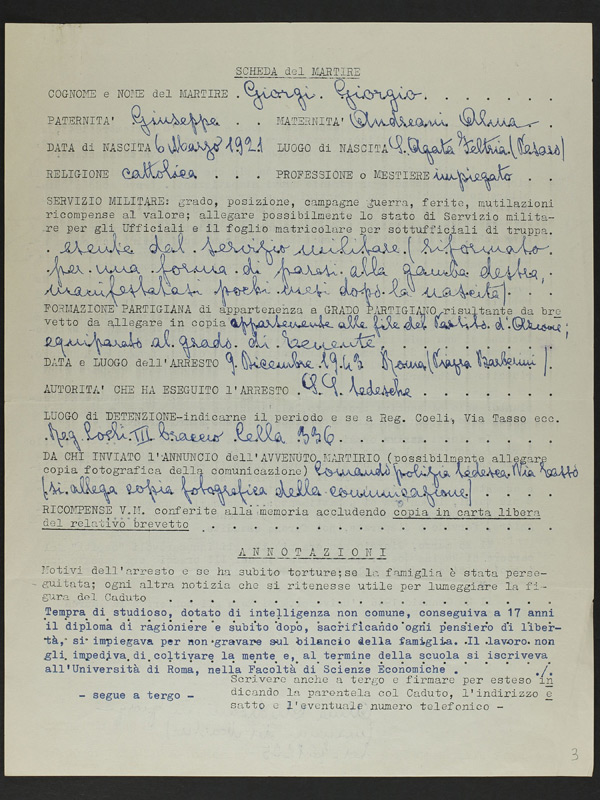 SCHEDA del MARTIRE
COGNOME e NOME del MARTIRE . Giorgi . Giorgio . . . . . . .
PATERNITA' Giuseppe . . MATERNITA' Andreani Alma . .
DATA di NASCITA 6 Marzo 1921 LUOGO di NASCITA S. Agata Feltria (Pesaro)
RELIGIONE cattolica . . . PROFESSIONE o MESTIERE impiegato . .
SERVIZIO MILITARE: grado, posizione, campagne guerra, ferite, mutilazioni
ricompense al valore; allegare possibilmente lo stato di Servizio milita-
re per gli Ufficiali e il foglio matricolare per sottufficiali di truppa.
. esente dal servizio militare (riformato
per una forma di paresi alla gamba destra,
manifestatasi pochi mesi dopo la nascita).
FORMAZIONE PARTIGIANA di appartenenza a GRADO PARTIGIANO risultante da bre
vetto da allegare in copia appartenente alle file del Partito d'Azione;
equiparato al grado di tenente
DATA e LUOGO dell'ARRESTO 9. Dicembre 1943 Roma (Piazza Barberini).
AUTORITA' CHE HA ESEGUITO l'ARRESTO . S.S. tedesche . . . . . . .
LUOGO di DETENZIONE-indicarne il periodo e se a Reg. Coeli, Via Tasso ecc.
Reg. Coeli III braccio Cella 336 . . . . .
DA CHI INVIATO l'ANNUNCIO dell'AVVENUTO MARTIRIO (possibilmente allegare
copia fotografica della comunicazione) Comando polizia tedesca Via Tasso
(si allega copia fotografica della comunicazione) . . . .
RICOMPENSE V.M. conferite alla memoria accludendo copia in carta libera
del relativo brevetto . . . . . . . . . . . . .
ANNOTAZIONI
Motivi dell'arresto e se ha subito torture;se la famiglia è stata perse-
guitata; ogni altra notizia che si ritenesse utile per lumeggiare la fi-
gura del Caduto . . . . . . . . . . . . .
Tempra di studioso, dotato di intelligenza non comune, conseguiva a 17 anni
il diploma di ragioniere e subito dopo, sacrificando ogni pensiero di liber-
tà, si impiegava per non gravare sul bilancio della famiglia. Il lavoro non
gli impediva di coltivare la mente e, al termine della scuola si iscriveva
all'Università di Roma, nella Facoltà di Scienze Economiche . ./.
Scrivere anche a tergo e firmare per esteso in
- segue a tergo - dicando la parentela col Caduto, l'indirizzo e
satto e l'eventuale numero telefonico -
3